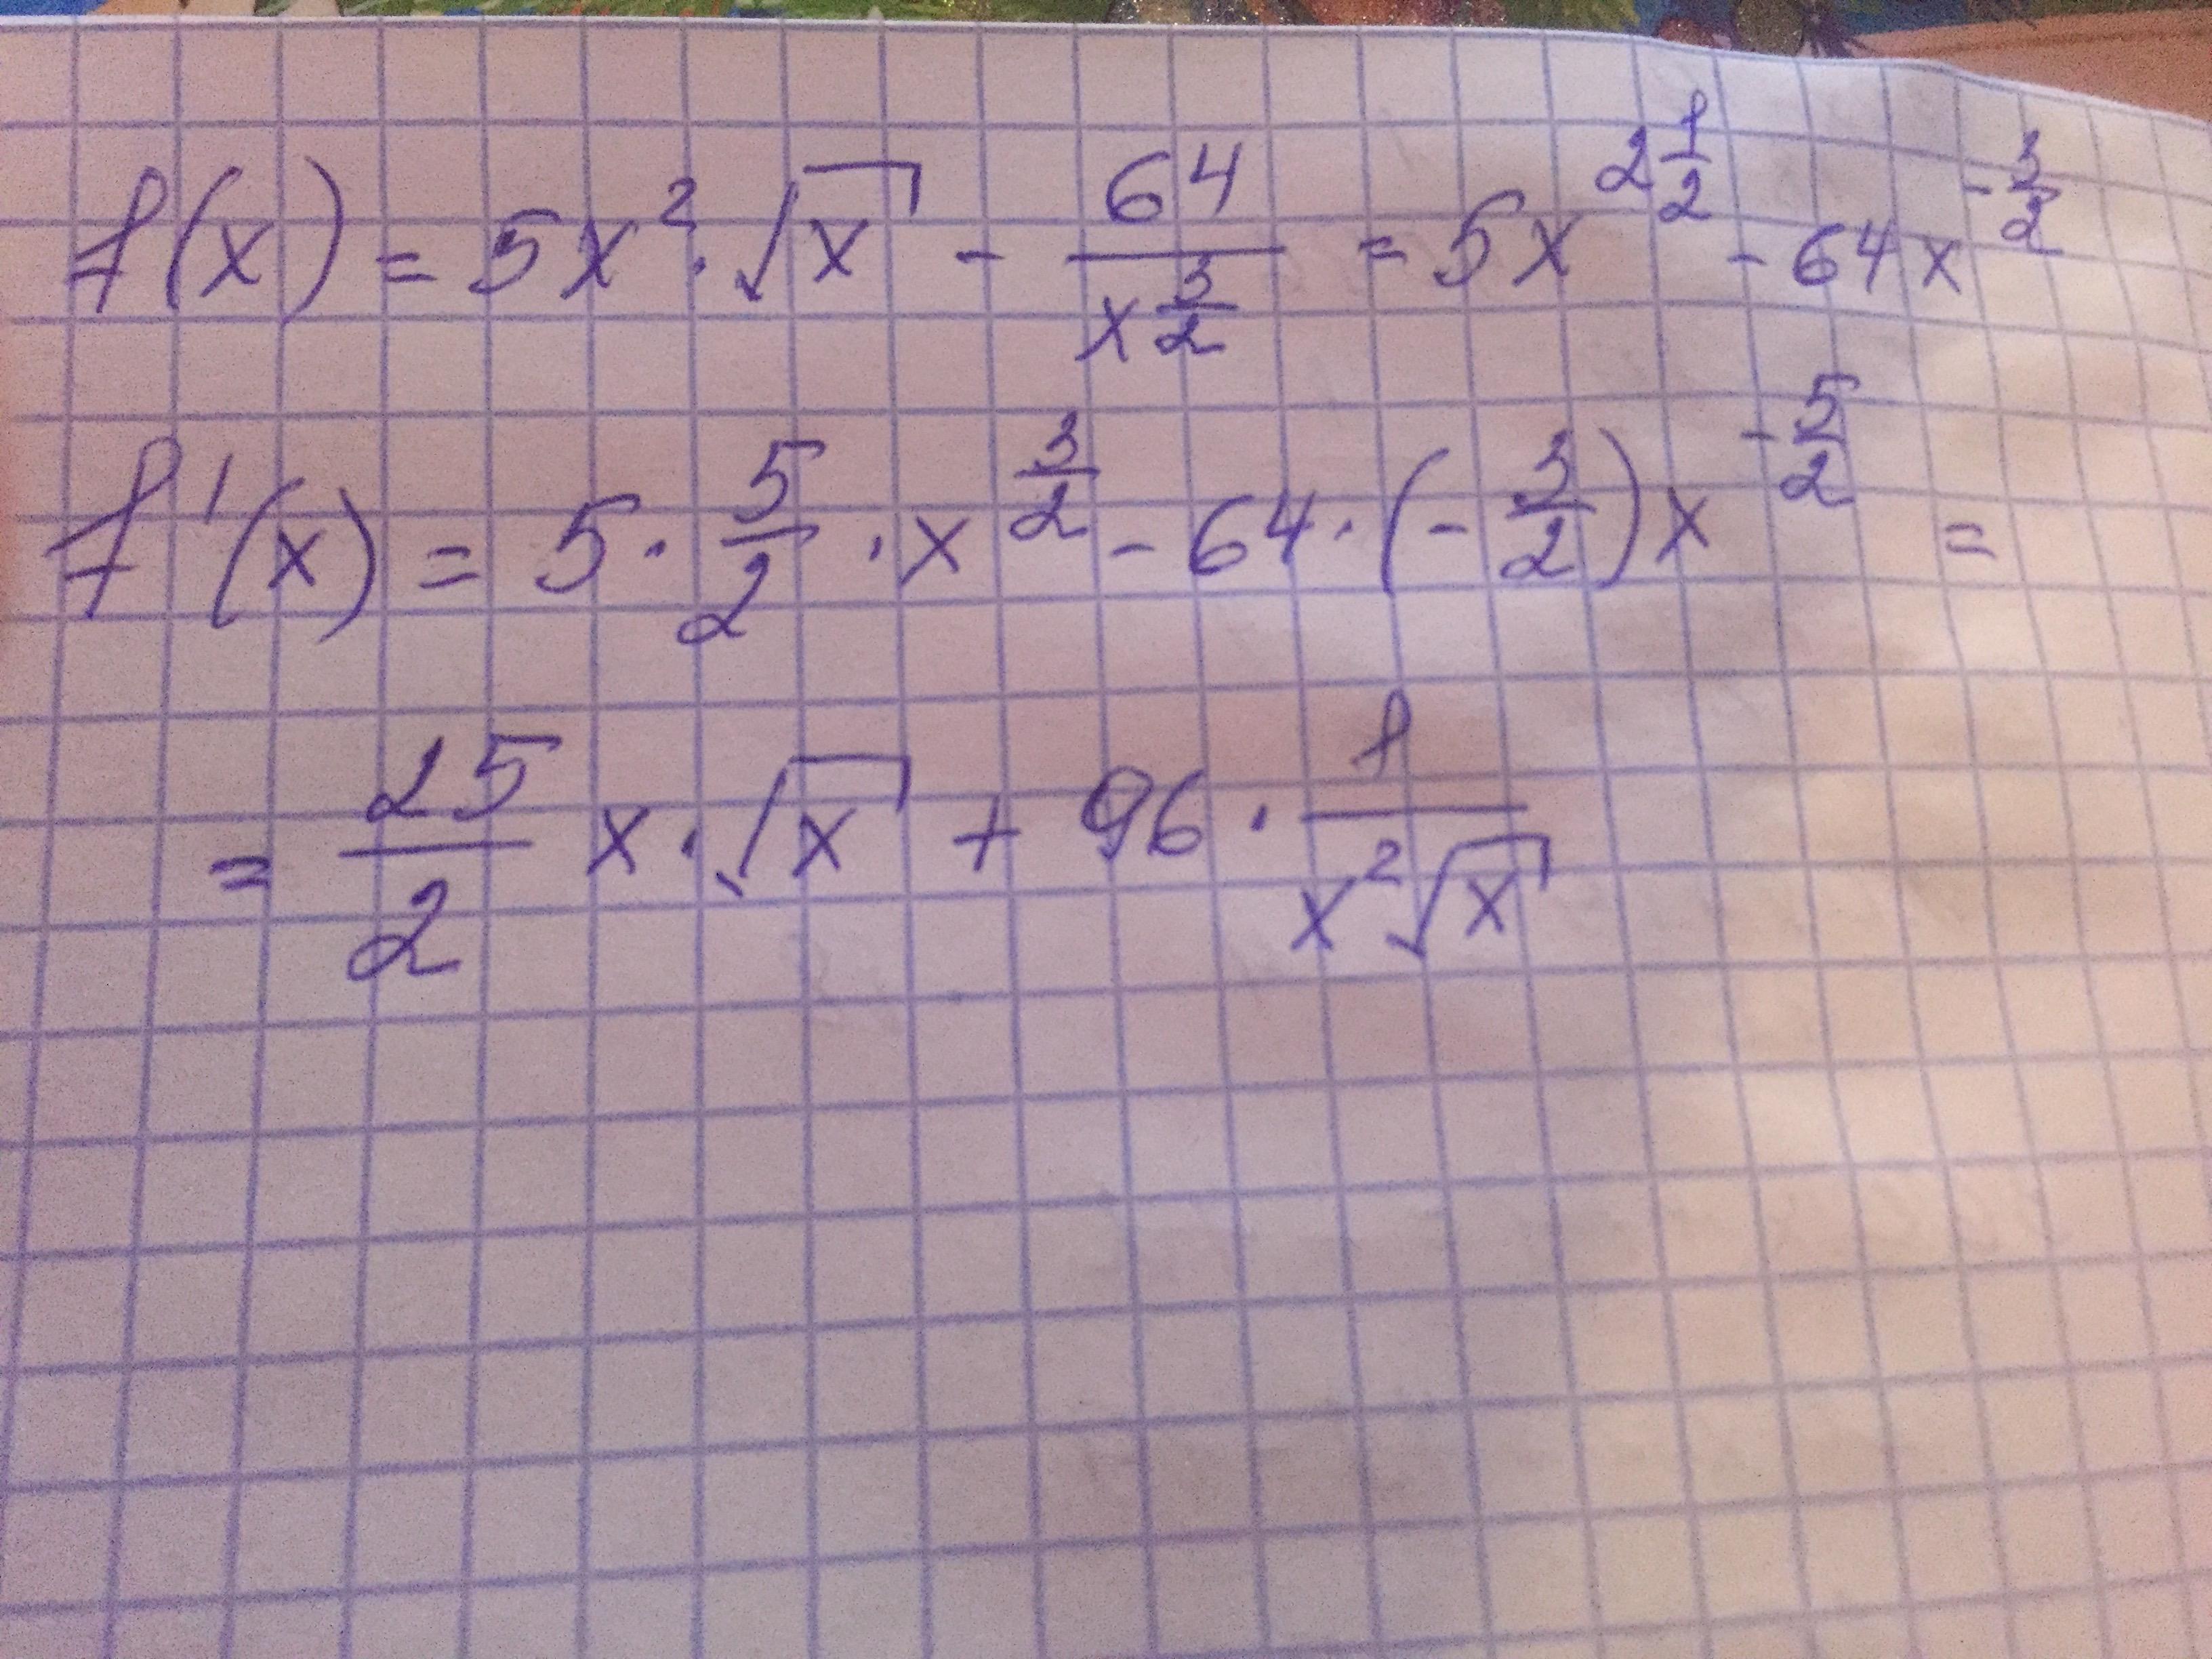 f(x) = 5x² · √x - 64/x^(3/2) = 5x^(2 1/2) - 64x^(-3/2)
f'(x) = 5 · 5/2 · x^(3/2) - 64 · (-3/2)x^(-5/2) =
= 25/2 x · √x + 96 · 1/(x²√x)